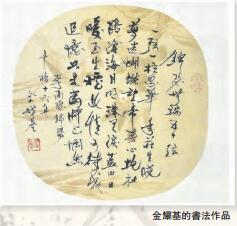 錦瑟無端五十弦
一弦一柱思華年莊生曉
夢迷蝴蝶望帝春心託杜
鵑滄海月明珠有淚藍田日
暖玉生煙此情可待成
追憶只是當時已惘然
李商隱錦瑟
金耀基
金耀基的書法作品